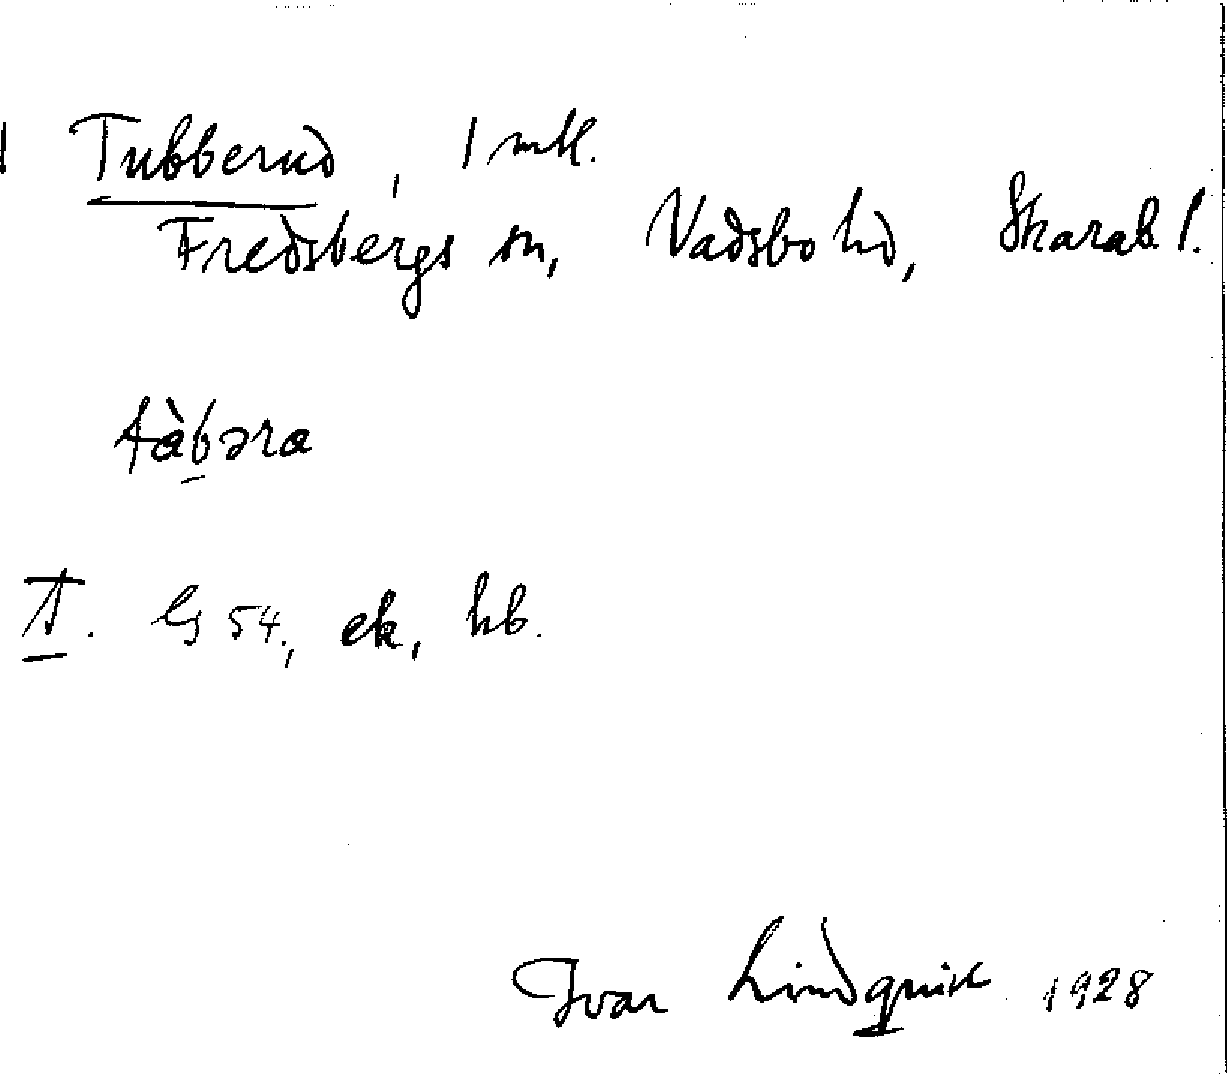 Tubberud, 1 mtl.
Fredsbergs sn, Vadsbo hd, Skarab. l.
tàbəra
T. Gs 54, ek, hb.
Ivar Lindquist 1928